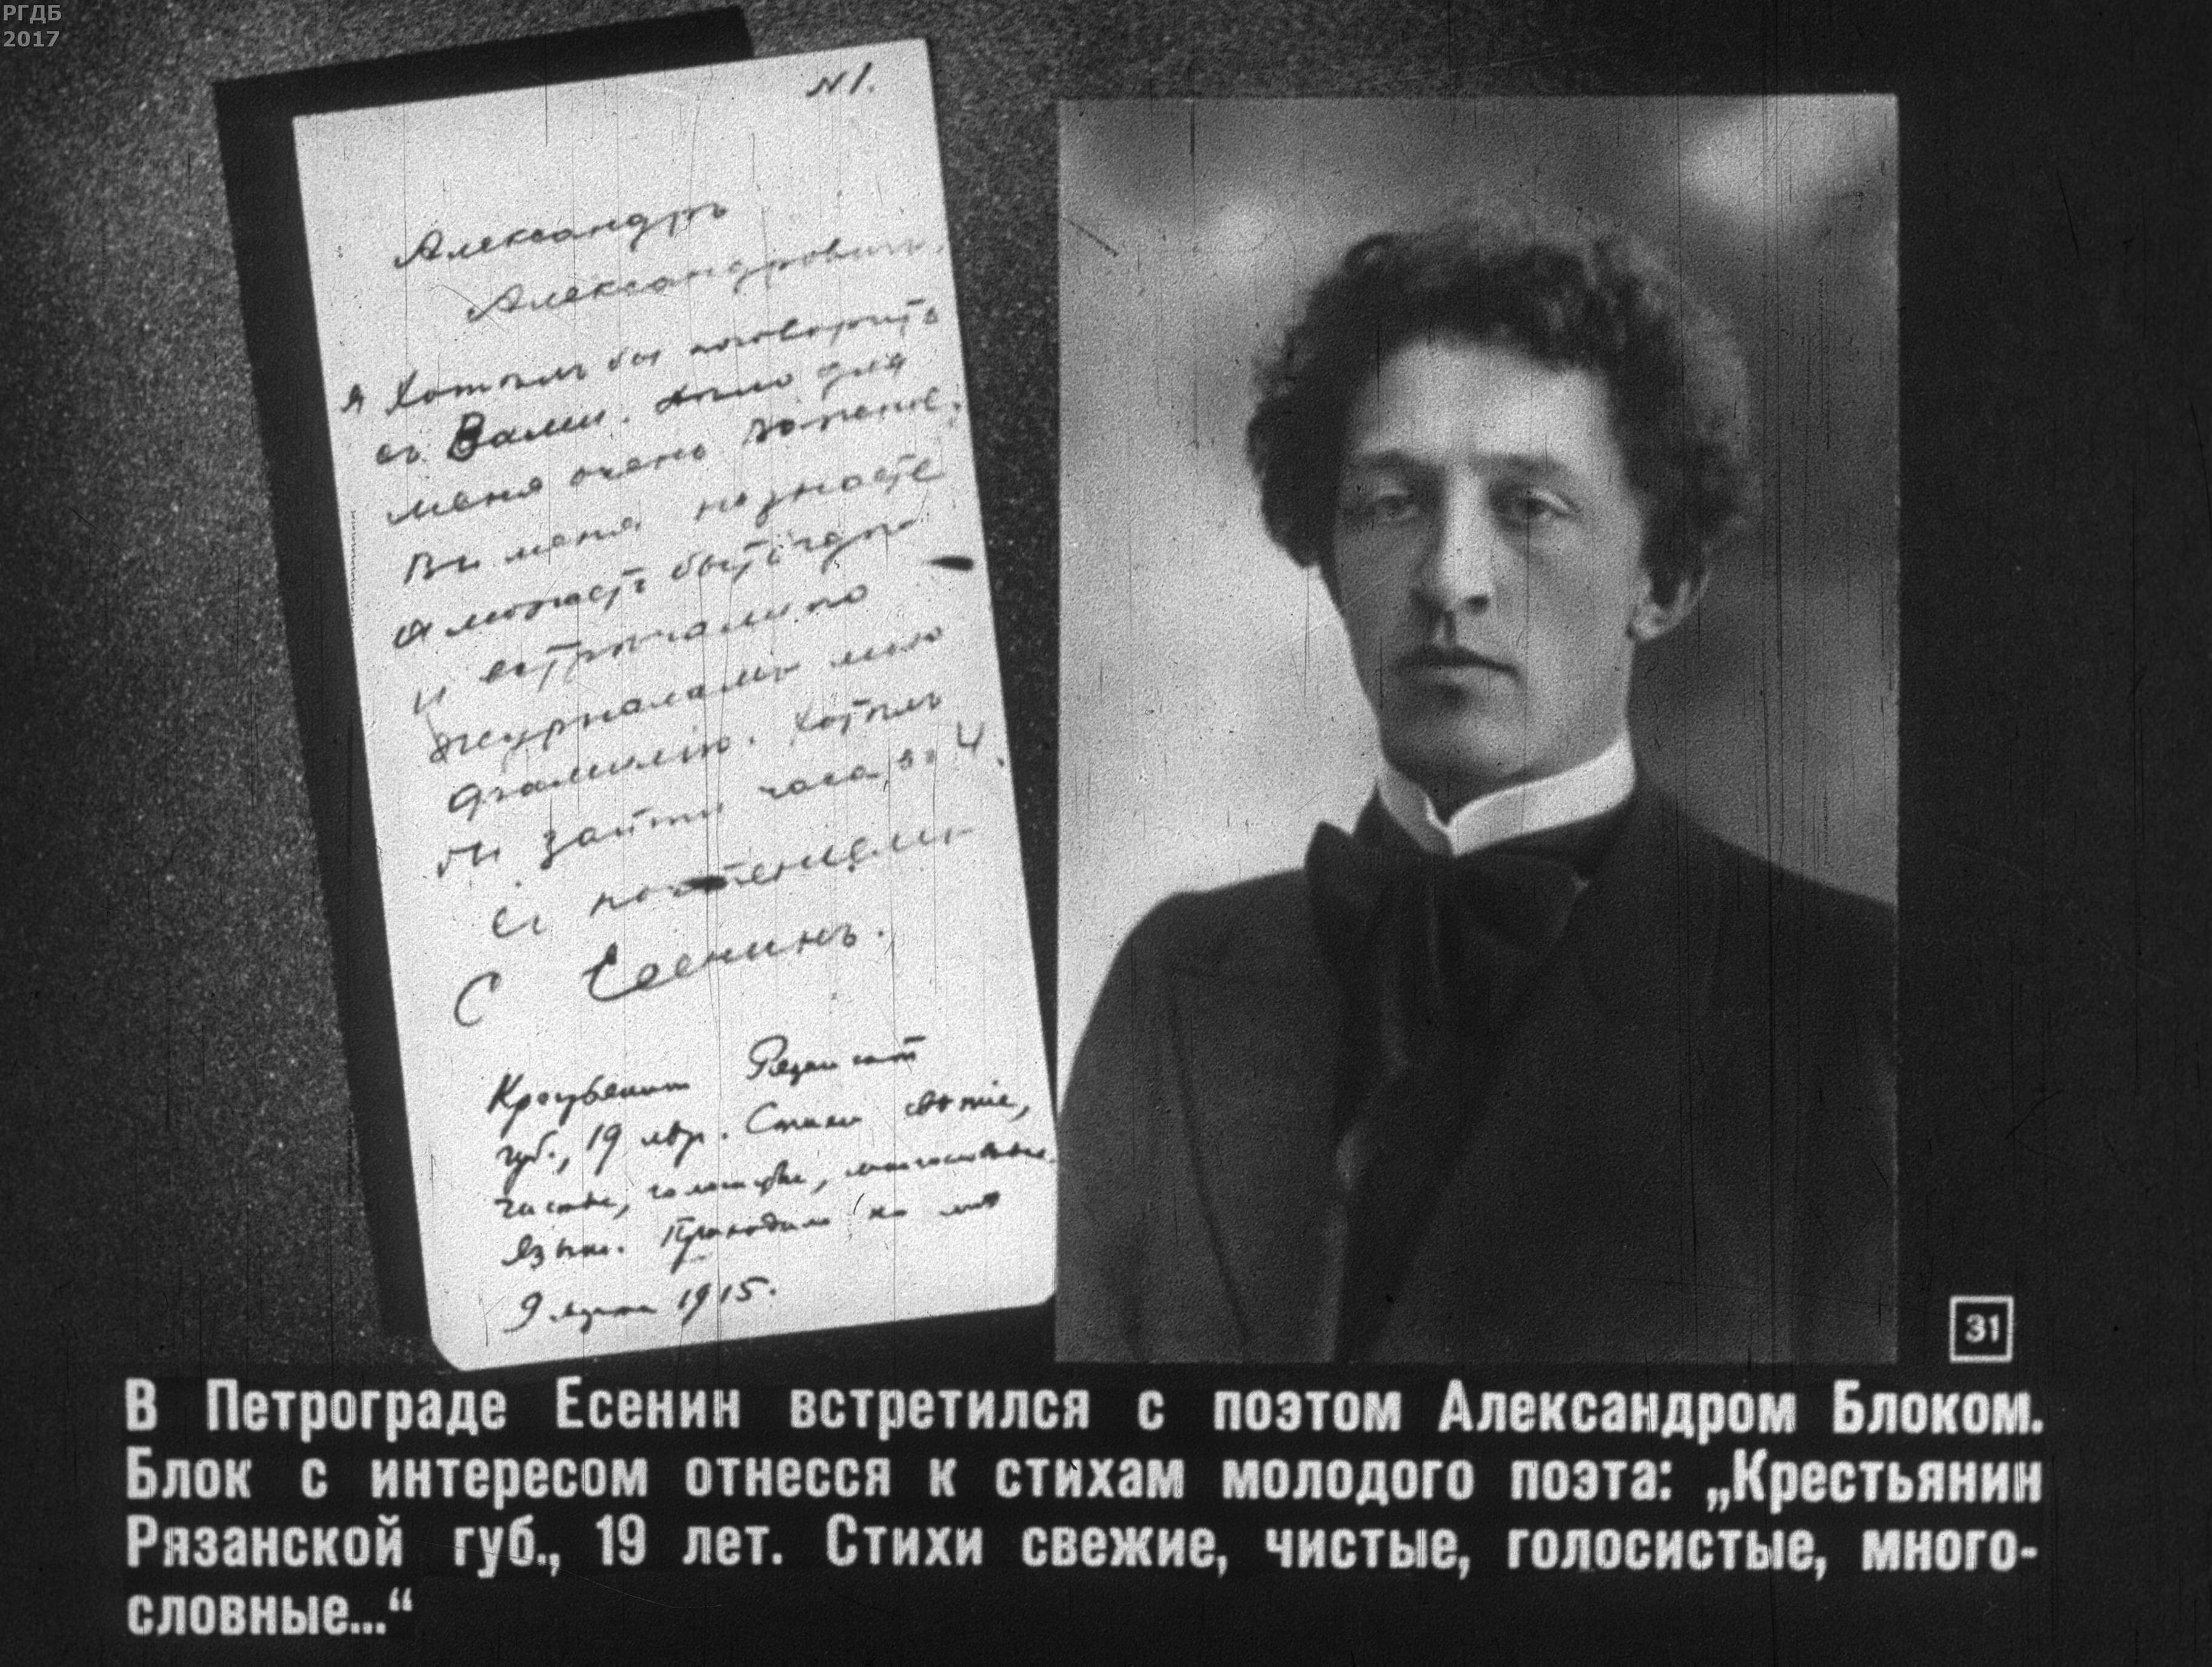 РГДБ
2017
N 1.
Александръ
Александровичъ.
Я хотѣлъ бы поговорить
съ Вами. дѣло для
меня очень важное.
Вы меня не знаете
а можетъ быть гдѣ
и встрѣчали по
журналамъ мою
фамилію. Хотѣлъ
бы зайти часа въ 4.
Съ почтеніемъ
С Есенинъ.
Крестьянин Рязанской
губ., 19 лѣт. Стихи свѣжіе,
чистые, голосистые, многословные.
Язык. Приходил ко мнѣ
9 марта 1915.
31
В Петрограде Есенин встретился с поэтом Александром Блоком.
Блок с интересом отнесся к стихам молодого поэта: „Крестьянин
Рязанской губ., 19 лет. Стихи свежие, чистые, голосистые, много-
словные...“